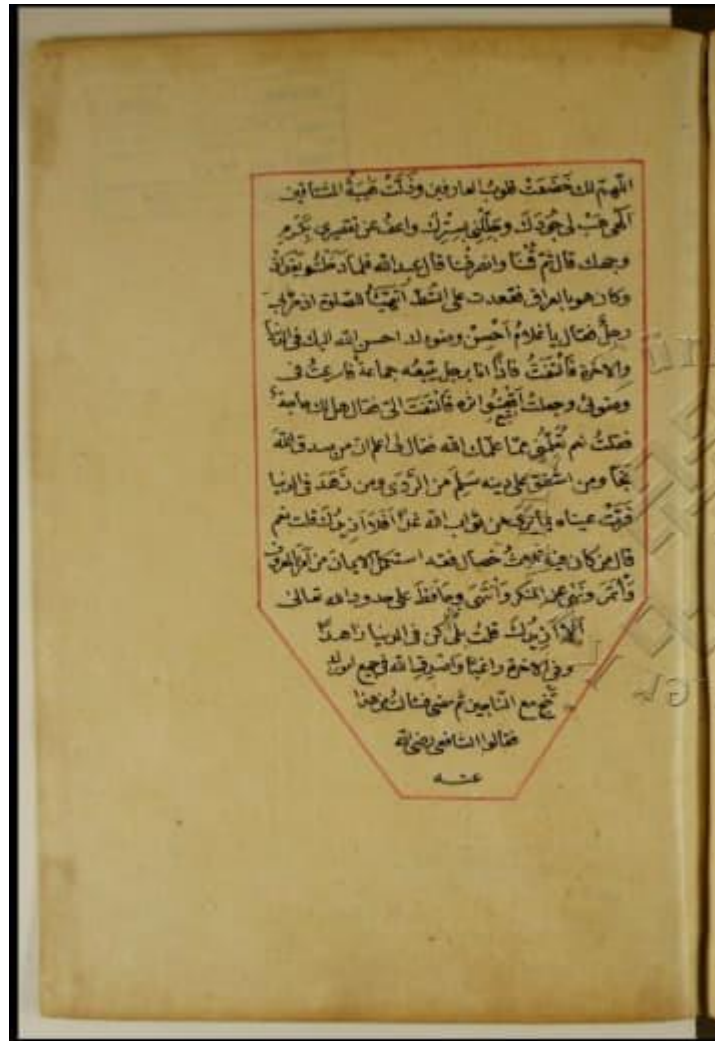 اللهم لك خَضَعَتْ قلوبُ العارفين وذَلَّتْ هَيْبَةُ المشتاقين
الهى هَبْ لى جُودَكَ وجَلِّلْنِى بِسِتْرِكَ واعفُ عن تقصيرى بِكَرَمِ
وجهك قال ثمّ قُمْنَا وانصرفْنا قال عبد الله فلما دَخَلْتُ بَغْدَادَ
وكان هو بالعراق فقعدت على الشطّ اَتَهَيَّأُ للصلوة اذ مرّ بى
رجلٌ فقال يا غلامُ اَحْسِنْ وضوءك احسن الله اليك فى الدنيا
والاخرة فَالْتَفَتُّ فاِذَا انا برجل يتبعُه جماعةٌ فاسرعتُ فى
وضوئى وجعلتُ اَقْفُوا اثره فَالْتَفَتَ الىّ فقال هل لك حاجة
فقلتُ نعم تُعَلِّمُنِى ممّا علمك الله فقال لى اعلم ان من صدق اللهَ
نَجَا ومن اشفق على دينه سَلِمَ من الرَّدَى ومن زَهَدَ فى الدنيا
قَرَّتْ عيناه بما يَرَى من ثواب الله غدًا افلا اَزِيدُكَ قلت نعم
قال من كان فيه ثلاثُ خصال فقد استكمل الايمان من اَمَرَ بالمعروف
وَأْتَمَرَ ونَهَى عن المنكر وَانْتَهَى وحَافَظَ على حدود الله تعالى
اَلَا اَزِيدُكَ قلتُ بلى كن فى الدنيا زاهدًا
وفى الاخرة راغبًا وَاصْدُقِ الله فى جميع امورك
تَنْجُ مع النّاجين ثم مضى فسألتُ من هذا
فقالوا الشافعى رضى الله
عنه